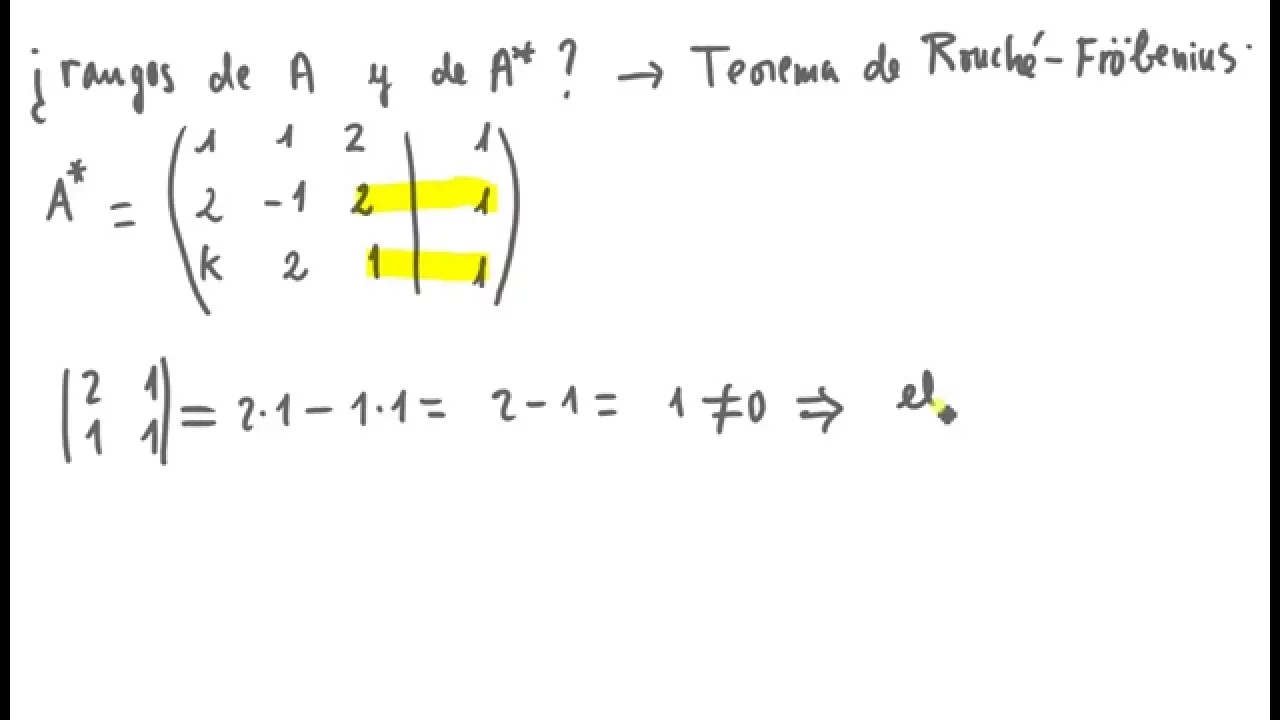 ¿rangos de A y de A* ? → Teorema de Rouché-Fröbenius.
A* = ( 1 1 2 | 1 )
2 -1 2 | 1
k 2 1 | 1
| 2 1 | = 2·1 - 1·1 = 2 - 1 = 1 ≠ 0 ⇒ el
| 1 1 |